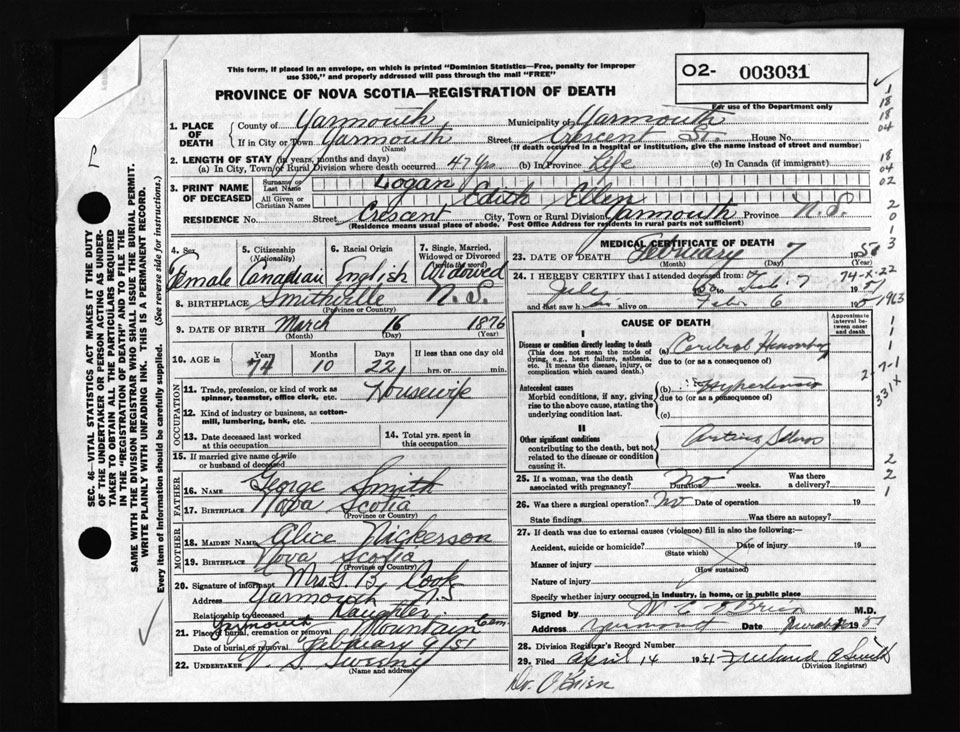 This form, if placed in an envelope, on which is printed "Dominion Statistics—Free, penalty for improper
use $300," and properly addressed will pass through the mail "FREE"
PROVINCE OF NOVA SCOTIA—REGISTRATION OF DEATH
O2- 003031
For use of the Department only
1. PLACE OF DEATH
County of Yarmouth Municipality of Yarmouth
If in City or Town Yarmouth Street Crescent St. House No.
(Name) (If death occurred in a hospital or institution, give the name instead of street and number)
2. LENGTH OF STAY (in years, months and days)
(a) In City, Town/or Rural Division where death occurred 47 Yrs (b) In Province Life (c) In Canada (if immigrant)
3. PRINT NAME OF DECEASED
Surname or Last Name Logan
All Given or Christian Names Edith Ellen
RESIDENCE No. Street Crescent City, Town or Rural Division Yarmouth Province N.S.
(Residence means usual place of abode. Post Office Address for residents in rural parts not sufficient)
4. Sex 5. Citizenship (Nationality) 6. Racial Origin 7. Single, Married, Widowed or Divorced (write the word)
Female Canadian English Widowed
8. BIRTHPLACE Smithville N.S.
(Province or Country)
9. DATE OF BIRTH March 16 1876
(Month) (Day) (Year)
10. AGE in Years Months Days If less than one day old
74 10 22 hrs. or min.
OCCUPATION
11. Trade, profession, or kind of work as spinner, teamster, office clerk, etc. Housewife
12. Kind of industry or business, as cotton-mill, lumbering, bank, etc.
13. Date deceased last worked at this occupation
14. Total yrs. spent in this occupation
15. If married give name of wife or husband of deceased
FATHER
16. NAME George Smith
17. BIRTHPLACE Nova Scotia
(Province or Country)
MOTHER
18. MAIDEN NAME Alice Nickerson
19. BIRTHPLACE Nova Scotia
(Province or Country)
20. Signature of informant Mrs. G. B. Cook
Address Yarmouth N.S.
Relationship to deceased Daughter
21. Place of burial, cremation or removal Yarmouth Mountain Cem.
Date of burial or removal February 9/51
22. UNDERTAKER V. S. Sweeny
(Name and address)
MEDICAL CERTIFICATE OF DEATH
23. DATE OF DEATH February 7 19
(Month) (Day) (Year)
24. I HEREBY CERTIFY that I attended deceased from
July 1950 to Feb. 7 1951
and last saw h alive on Feb 6 1951
74-X-22
1963
CAUSE OF DEATH
Approximate interval between onset and death
I
Disease or condition directly leading to death
(This does not mean the mode of dying, e.g., heart failure, asthenia, etc. It means the disease, injury, or complication which caused death.)
(a) Cerebral Hemorrhage
due to (or as a consequence of)
Antecedent causes
Morbid conditions, if any, giving rise to the above cause, stating the underlying condition last.
(b) Hypertension
due to (or as a consequence of)
(c)
II
Other significant conditions
contributing to the death, but not related to the disease or condition causing it.
2-7-1
331X
25. If a woman, was the death associated with pregnancy? No Duration weeks. Was there a delivery?
26. Was there a surgical operation? No Date of operation 19
State findings Was there an autopsy?
27. If death was due to external causes (violence) fill in also the following:—
Accident, suicide or homicide? Date of injury 19
(State which)
Manner of injury
(How sustained)
Nature of injury
Specify whether injury occurred in industry, in home, or in public place
Signed by W. C. O'Brien M.D.
Address Yarmouth Date 1951
28. Division Registrar's Record Number
29. Filed April 14 1951 Freeland A Smith
(Division Registrar)
Dr. O'Brien
SEC. 46—VITAL STATISTICS ACT MAKES IT THE DUTY
OF THE UNDERTAKER OR PERSON ACTING AS UNDER-
TAKER TO OBTAIN ALL THE PARTICULARS REQUIRED
IN THE "REGISTRATION OF DEATH" AND TO FILE THE
SAME WITH THE DIVISION REGISTRAR WHO SHALL ISSUE THE BURIAL PERMIT.
WRITE PLAINLY WITH UNFADING INK. THIS IS A PERMANENT RECORD.
Every item of information should be carefully supplied. (See reverse side for instructions.)
1
18
18
04
18
04
02
2
0
1
3
1
1
2
2
1